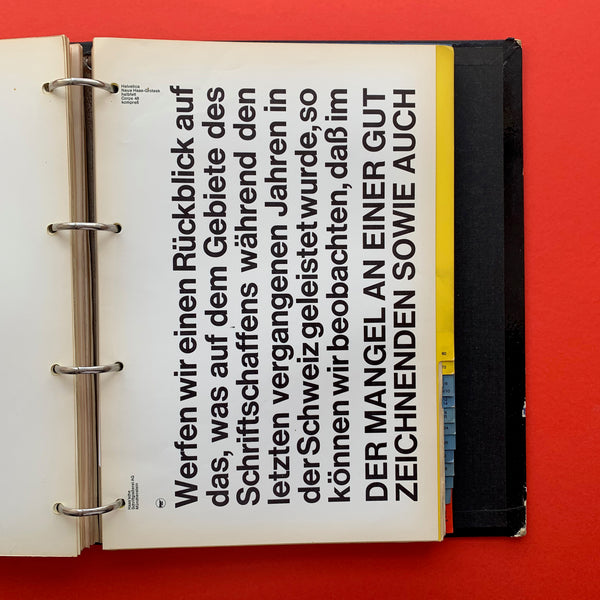 Helvetica
Neue Haas-Grotesk
halbfett
Corps 48
kompreß
Werfen wir einen Rückblick auf
das, was auf dem Gebiete des
Schriftschaffens während den
letzten vergangenen Jahren in
der Schweiz geleistet wurde, so
können wir beobachten, daß im
DER MANGEL AN EINER GUT
ZEICHNENDEN SOWIE AUCH
Haas'sche
Schriftgießerei AG
Münchenstein